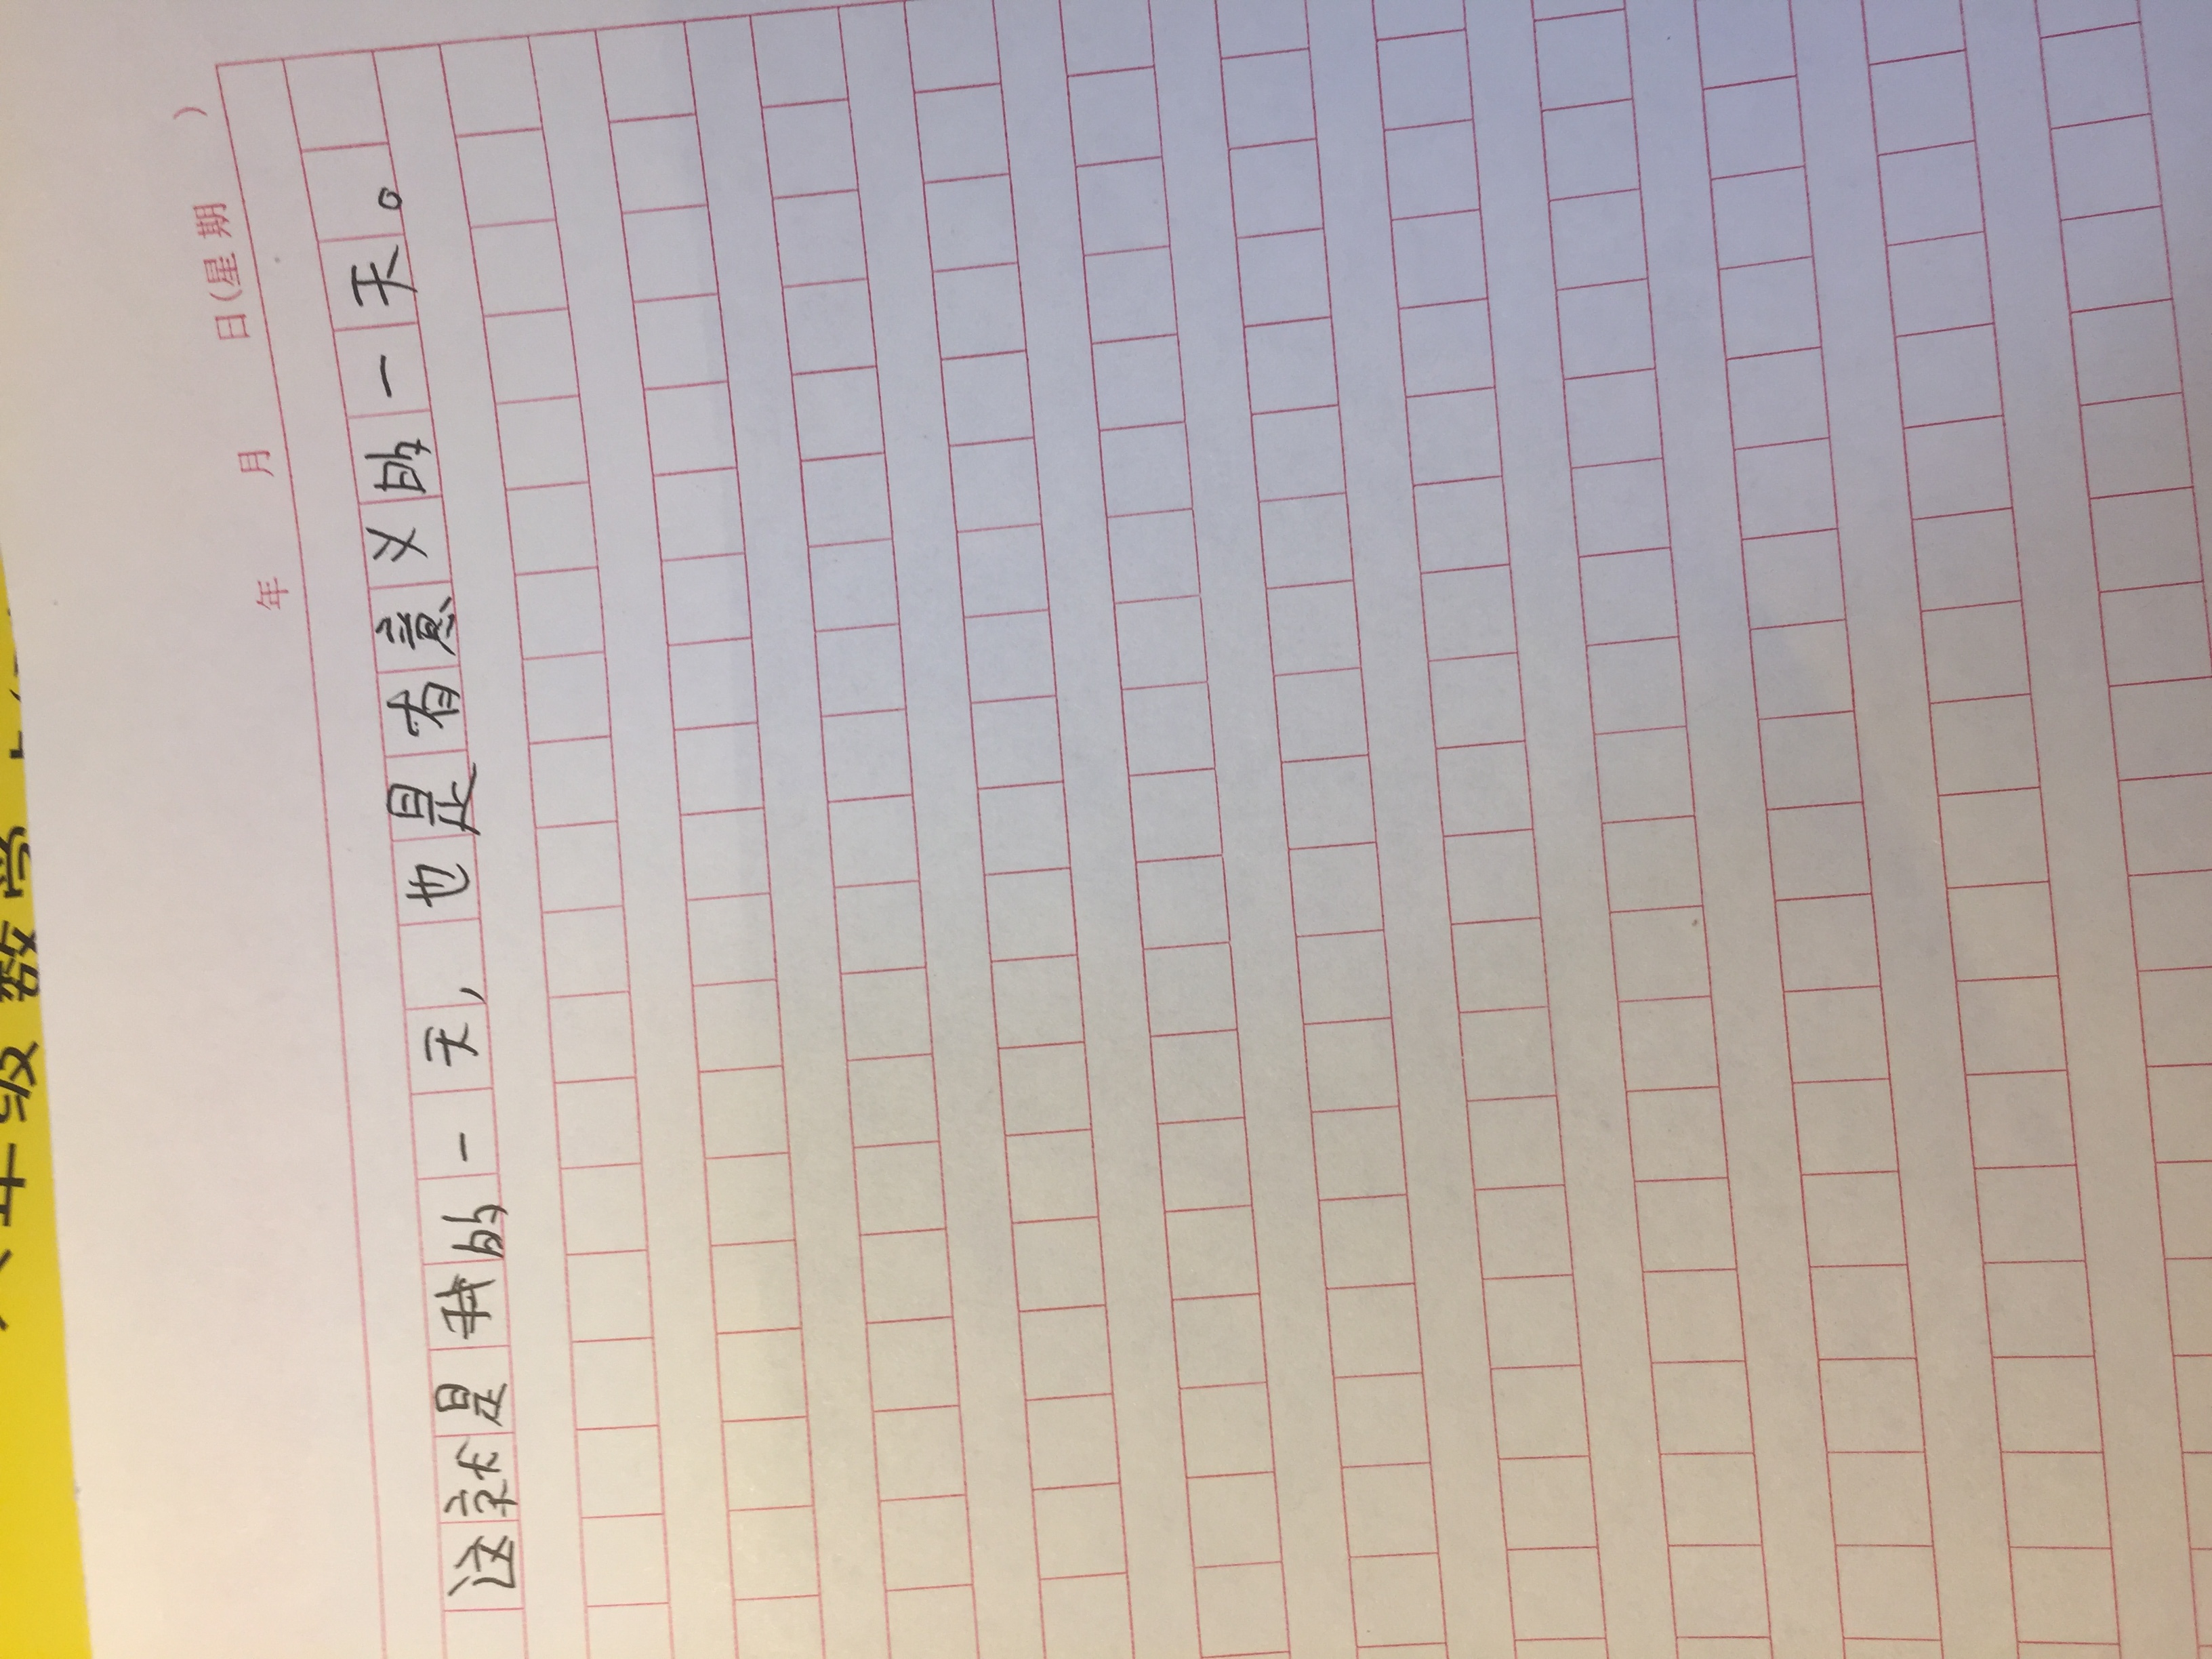 年级数学
年 月 日(星期 )
这就是我的一天，也是有意义的一天。